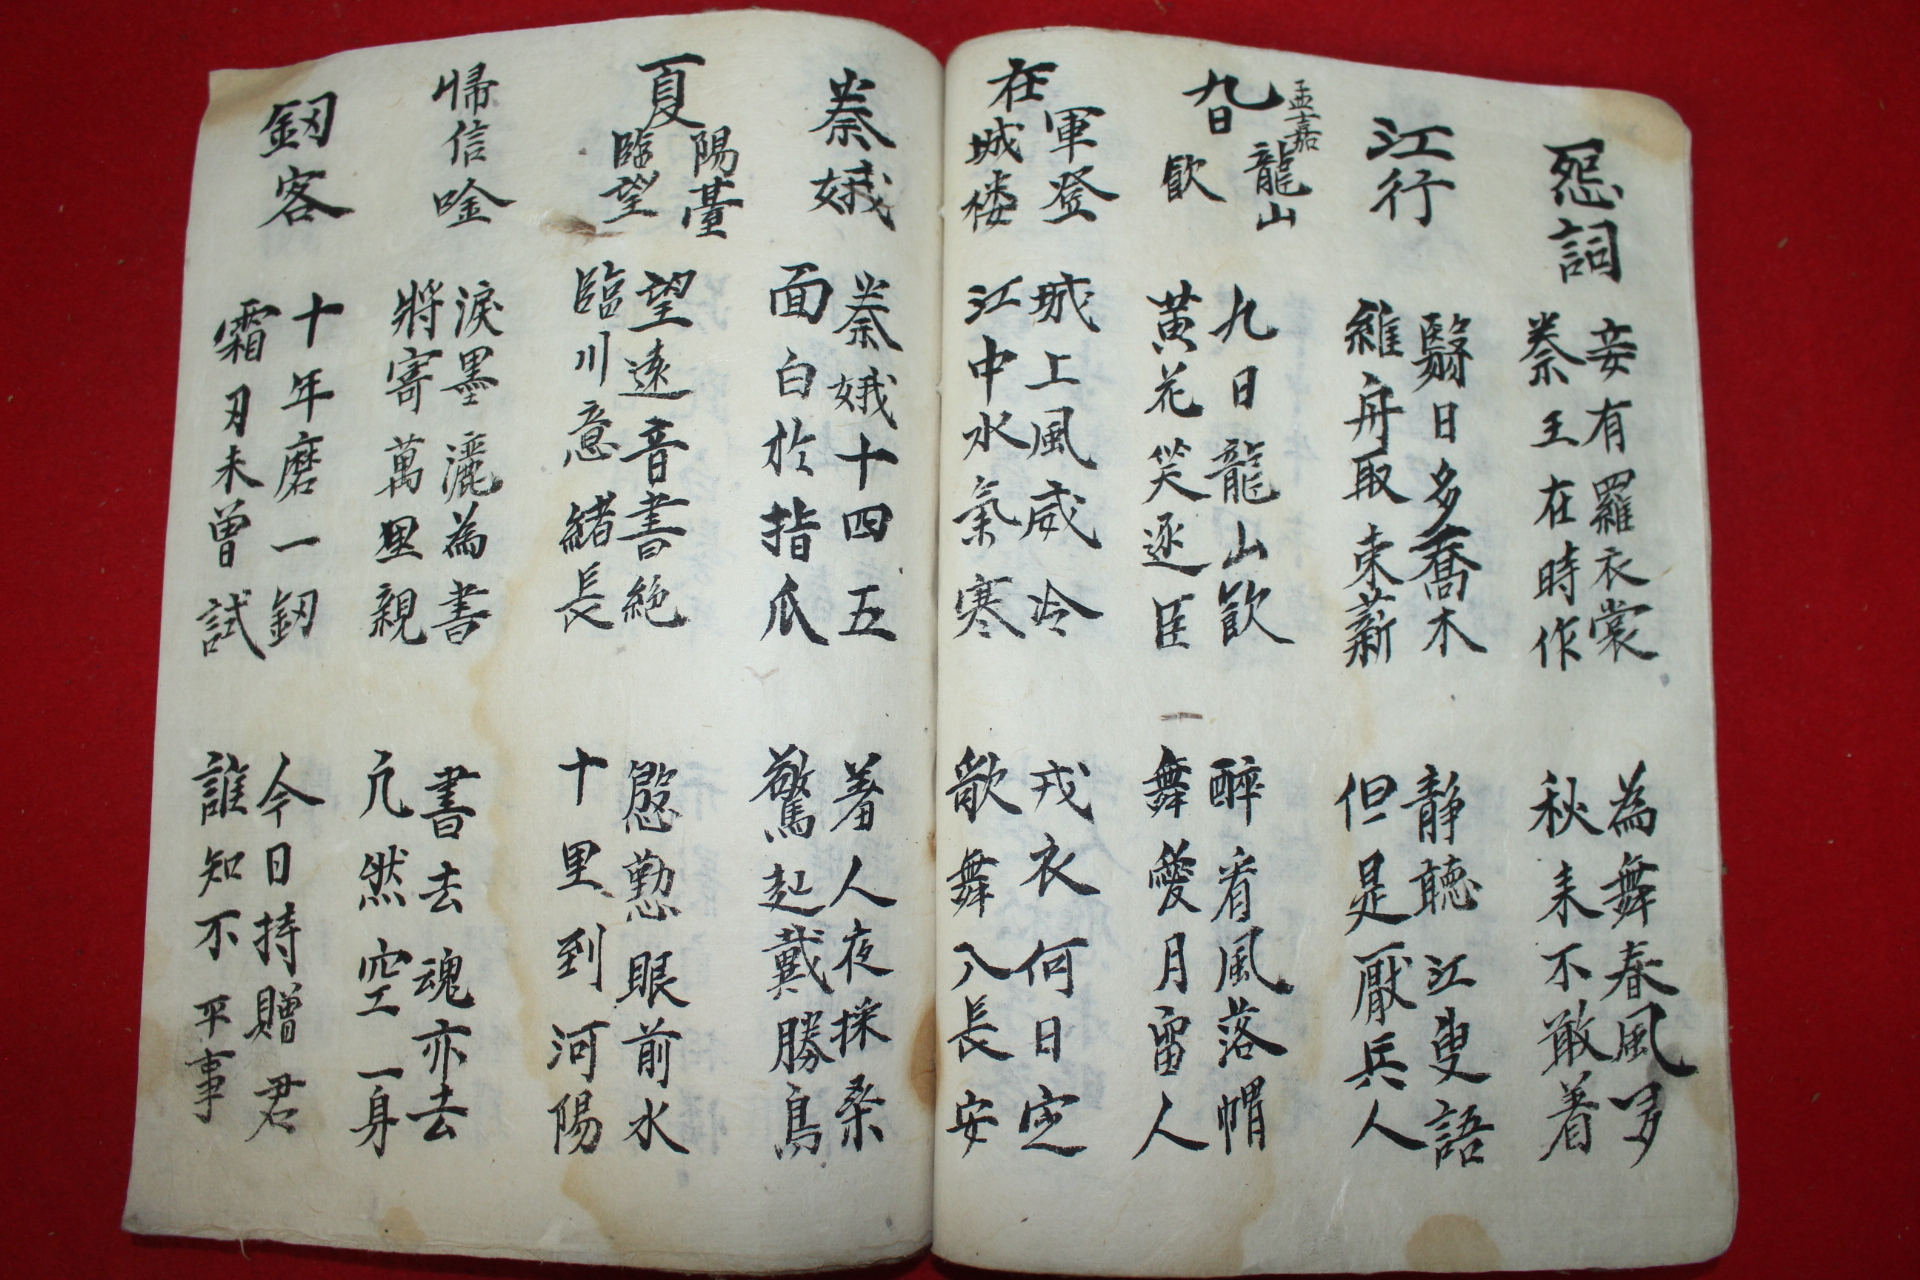 怨詞
妾有羅衣裳
秦王在時作
為舞春風多
秋来不敢着
江行
翳日多喬木
維舟取束薪
静聴江叟語
但是厭兵人
九日
孟嘉
龍山
飮
九日龍山飮
黄花笑逐臣
醉看風落帽
舞愛月留人
在
軍登
城楼
城上風威冷
江中水氣寒
戎衣何日定
歌舞入長安
秦娥
秦娥十四五
面白於指爪
羞人夜採桑
驚起戴勝鳥
夏
陽臺
臨望
望遠音書絶
臨川意緒長
慇懃眼前水
十里到河陽
帰信唫
淚墨灑為書
將寄萬里親
書去魂亦去
兀然空一身
釰客
十年磨一釰
霜刃未曽試
今日持贈君
誰知不平事